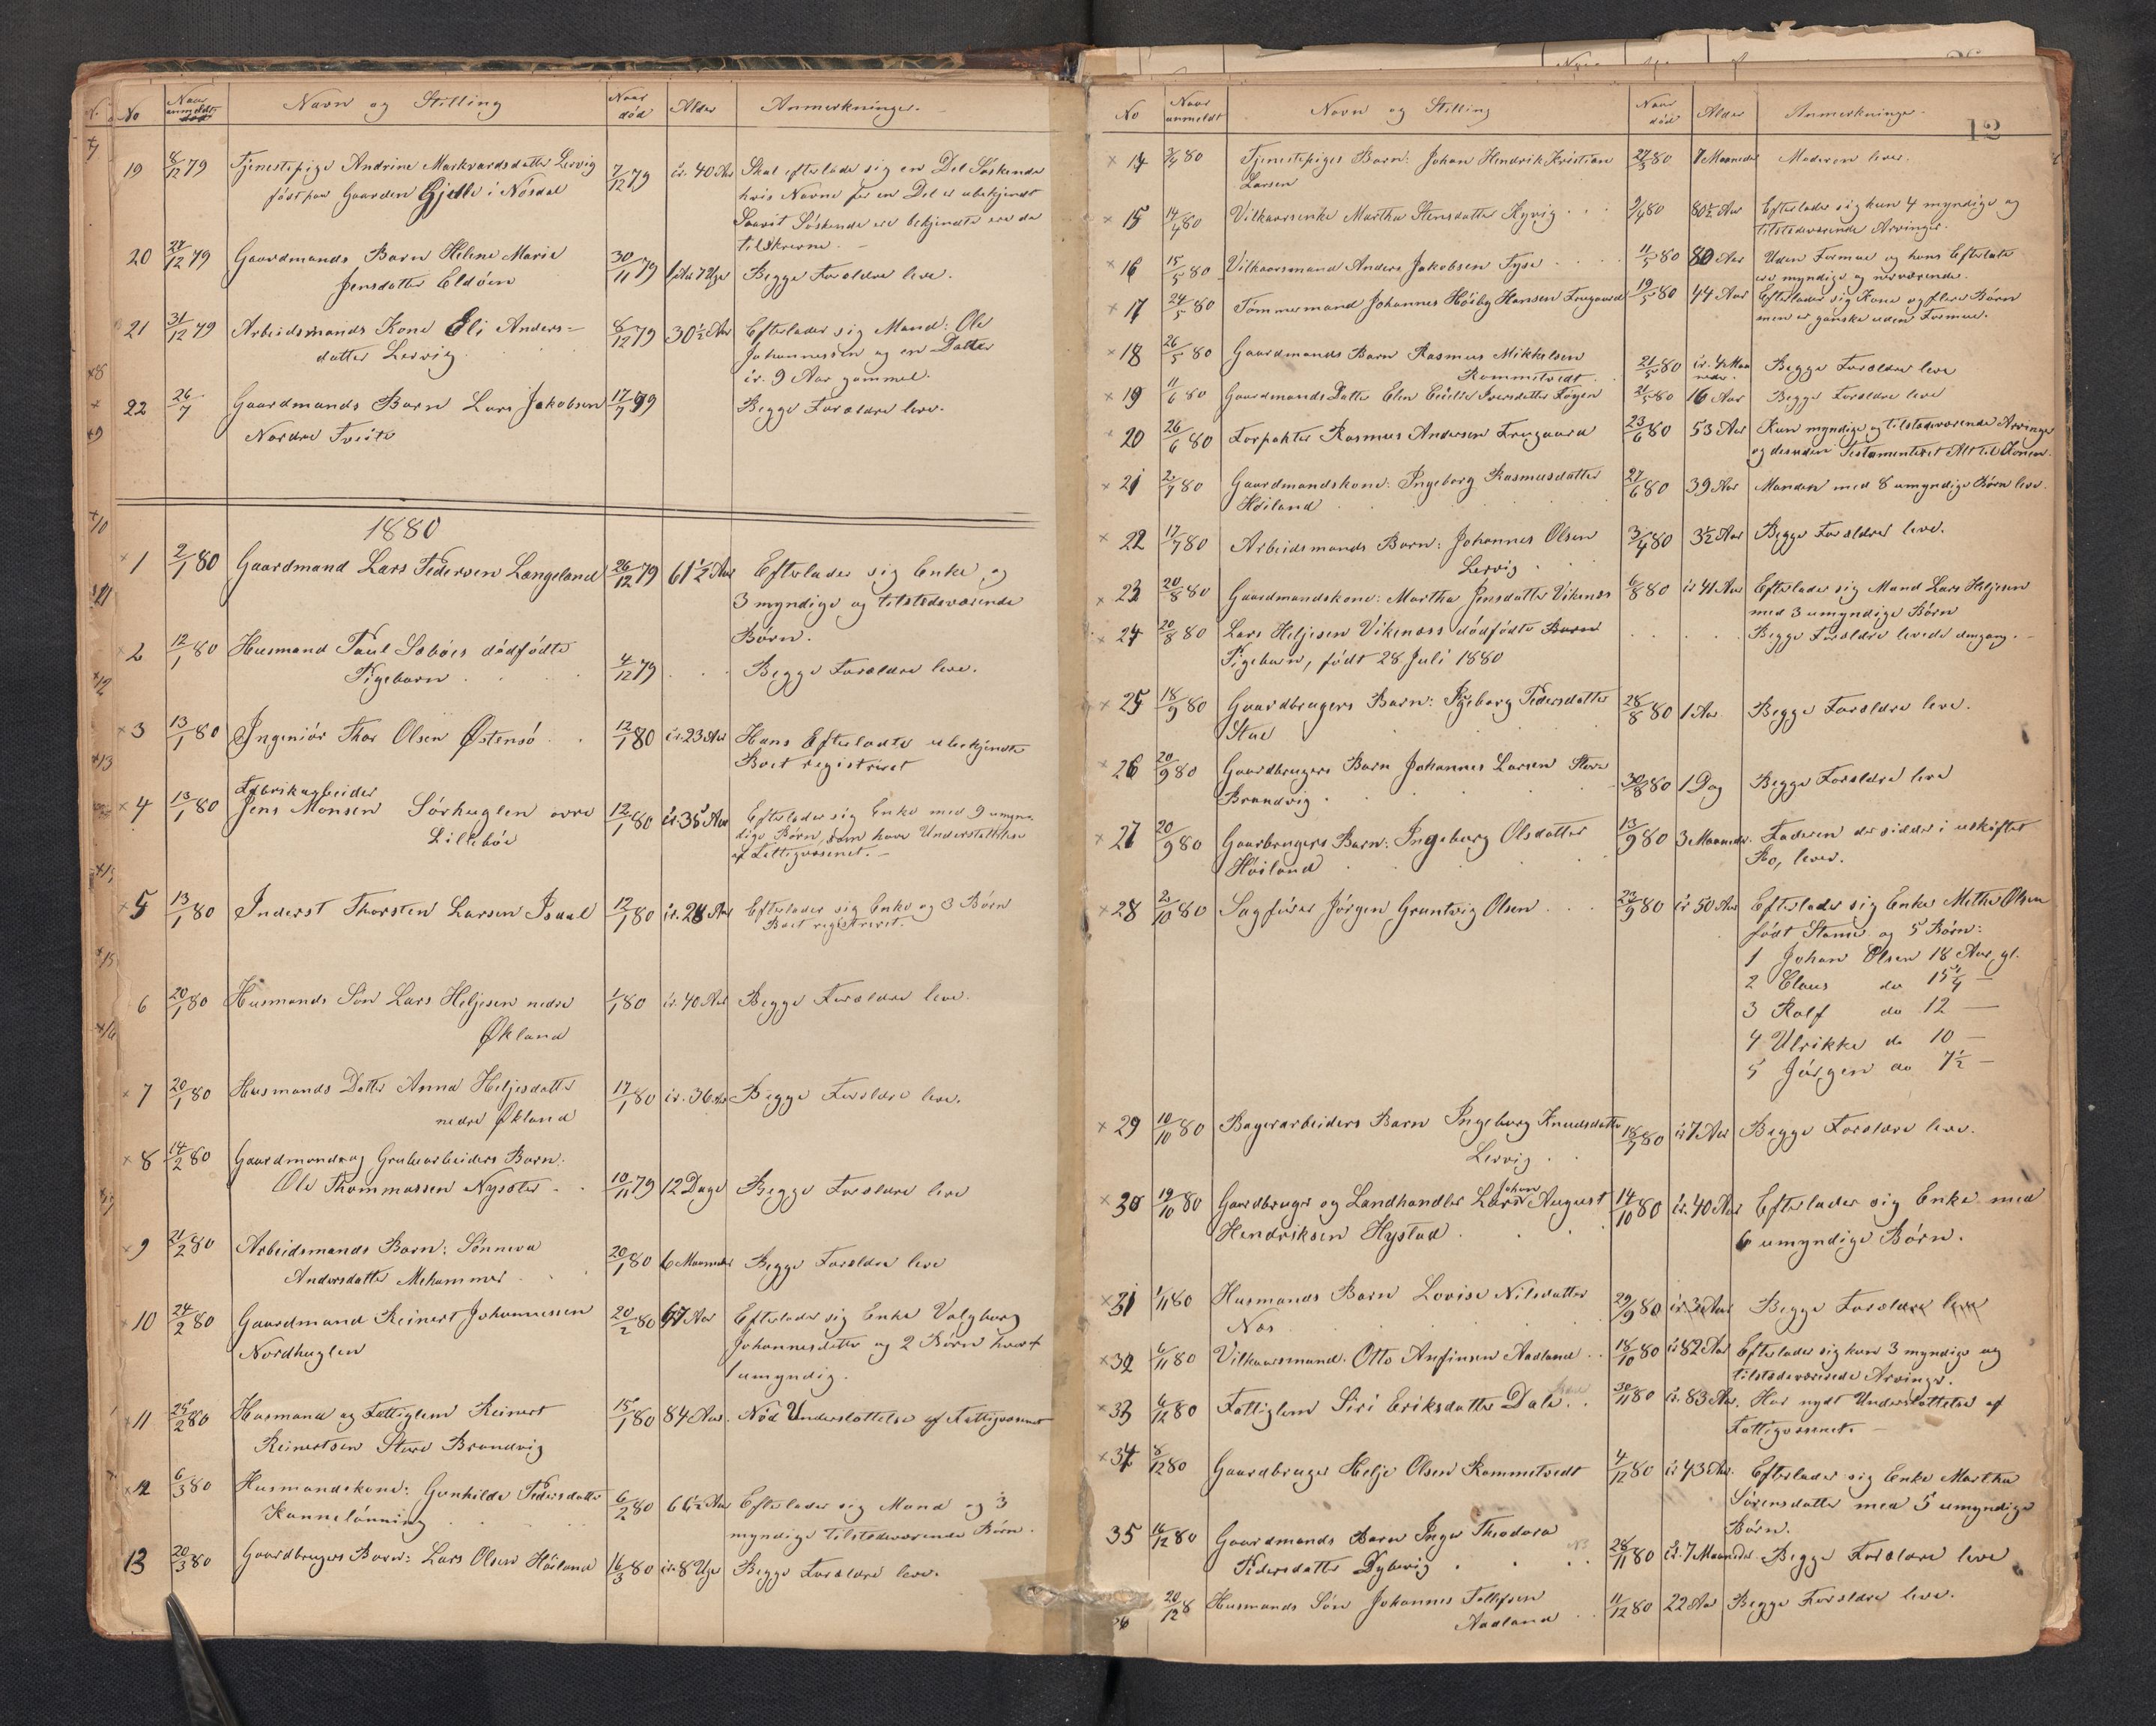 No Naar anmeldt Navn og Stilling Naar död Alder Anmerkninger.
19 8/12 79 Tjenestepige Andrine Markvardsdatter Lervig 7/12 79 cr. 40 Aar Skal efterlade sig en Del Söskende
född paa Gaarden Gjelle i hvis Navne for en Del er ubekjendt
Söskende ere bekjendte ere de
tilskrevne.
20 27/12 79 Gaardmands Barn Helene Marie 30/11 79 1 Aar 7 Uger Begge Forældre leve.
Jensdatter Eldöen
21 31/12 79 Arbeidsmands Kone Eli Anders- 8/12 79 30 1/2 Aar Efterlader sig Mand: Ole
datter Lervig Johannessen og en Datter
cr. 9 Aar gammel.
22 26/7 Gaardmands Barn Lars Jakobsen 17/7 79 Begge Forældre leve.
Nordre Tveite
1880
1 2/1 80 Gaardmand Lars Pedersen Langeland 26/12 79 61 1/2 Aar Efterlader sig Enke og
3 myndige og tilstedeværende
Börn.
2 12/1 80 Husmand Paul Sæböes dödfödte
Pigebarn 4/12 79 Begge Forældre leve.
3 13/1 80 Ingeniör Thor Olsen Östensö 12/1 80 cr. 23 Aar Hans Efterladte ubekjendte
Boet registreret
Fabrikarbeider
4 13/1 80 Jens Monsen Sörhuglen 12/1 80 cr. 35 Aar Efterlader sig Enke med 9 umyn-
Lillebö dige Börn, som have Understöttelse
af Fattigvæsenet.
5 13/1 80 Inderst Thorsten Larsen Isdal 12/1 80 cr. 28 Aar Efterlader sig Enke og 3 Börn
Boet registreret.
6 20/1 80 Husmands Sön Lars Heljesen nedre 1/1 80 cr. 40 Aar Begge Forældre leve.
Økland
7 20/1 80 Husmands Datter Anna Heljesdatter 17/1 80 cr. 36 Aar Begge Forældre leve.
nedre Økland
8 14/2 80 Gaardmands og Grubearbeiders Barn.
Ole Thommassen Nysæter 10/11 79 12 Dage Begge Forældre leve
9 21/2 80 Arbeidsmands Barn: Sönneva 20/1 80 6 Maaneder Begge Forældre leve
Andersdatter Mehammer
10 24/2 80 Gaardmand Reinert Johannessen 20/2 80 67 Aar Efterlader sig Enke Valgborg
Nordhuglen Johannesdatter og 2 Börn hvoraf
1 umyndig.
11 25/2 80 Husmand og Fattiglem Reinert 15/1 80 84 Aar Nöd Understöttelse af Fattigvæsenet
Reinertsen Store Brandvig
12 6/3 80 Husmandskone: Gunhilde Pedersdatter 6/2 80 66 1/2 Aar Efterlader sig Mand og 3
Kannelönning myndige tilstedeværende Börn.
13 20/3 80 Gaardbrugers Barn: Lars Olsen Höiland 16/3 80 cr. 8 Uger Begge Forældre leve.
12
No Naar anmeldt Navn og Stilling Naar död Alder Anmerkninger.
14 3/4 80 Tjenestepiges Barn: Johan Hendrik Kristian 27/3 80 7 Maaneder Moderen lever.
Larsen
15 14/4 80 Vilkaarsenke Martha Stensdatter Hyvig 9/4 80 80 1/2 Aar Efterlader sig kun 4 myndige og
tilstedeværende Arvinger.
16 15/5 80 Vilkaarsmand Anders Jakobsen Tyse 11/5 80 80 Aar Uden Formue og hans Efterlatte
ere myndige og nærværende.
17 24/5 80 Tömmermand Johannes Höiby Hansen Fruegaard 19/5 80 44 Aar Efterlader sig Kone og flere Börn
men er ganske uden Formue.
18 26/5 80 Gaardmands Barn Rasmus Mikkelsen 21/5 80 cr. 4 Maa Begge Forældre leve
Rommetvedt neder
19 11/6 80 Gaardmands Datter Elen Cecilie Iversdatter 21/5 80 16 Aar Begge Forældre leve
20 26/6 80 Forpakter Rasmus Andersen Fruegaard 23/6 80 53 Aar Kun myndige og tilstedeværende Arvinger
og desuden Testamenteret Alt til Konen.
21 2/7 80 Gaardmandskone: Ingeborg Rasmusdatter 27/6 80 39 Aar Manden med 8 umyndige Börn leve.
Höiland
22 17/7 80 Arbeidsmands Barn: Johannes Olsen 3/4 80 3 1/2 Aar Begge Forældre leve.
Lervig
23 20/8 80 Gaardmandskone: Martha Jensdatter Vikenæs 6/8 80 cr 41 Aar Efterlader sig Mand Lars Heljesen
med 3 umyndige Börn
24 20/8 80 Lars Heljesen Vikenæss dödfödte Barn Begge Forældre levede dengang.
Pigebarn, födt 28 Juli 1880
25 18/9 80 Gaardbrugers Barn: Ingeborg Pedersdatter 28/8 80 1 Aar Begge Forældre leve.
Stue
26 20/9 80 Gaardbrugers Barn Johannes Larsen Store 30/8 80 1 Dag Begge Forældre leve
Brandvig
27 20/9 80 Gaarbrugers Barn: Ingeborg Olsdatter 13/9 80 3 Maaneder. Faderen der sidder i uskiftet
Höiland Bo, lever.
28 2/10 80 Sagförer Jörgen Gruntvig Olsen 23/9 80 cr 50 Aar Efterlader sig Enke Methe Olsen
födt og 5 Börn:
1 Johan Olsen 18 Aar gl.
2 Claus do 15 1/4 —
3 Rolf do 12 —
4 Ulrikke do 10 —
5 Jörgen do 7 1/2 —
29 10/10 80 Bagerarbeiders Barn Ingeborg Knudsdatter 18/7 80 cr 7 Aar Begge Forældre leve.
Lervig
Johan
30 19/10 80 Gaardbruger og Landhandler Lars August 14/10 80 cr. 40 Aar Efterlader sig Enke med
Hendriksen Hystad 6 umyndige Börn.
31 1/11 80 Husmands Barn Lovise Nilsdatter 29/9 80 cr 3 Aar Begge Forældre leve
Næs
32 6/11 80 Vilkaarsmand. Otto Anfinsen Aadland 18/10 80 cr 82 Aar Efterlader sig kun 3 myndige og
tilstedeværende Arvinger.
33 6/12 80 Fattiglem Siri Eriksdatter Dale 30/11 80 cr. 83 Aar. Har nydt Understöttelse af
Fattigvæsenet.
34 8/12 80 Gaardbruger Helje Olsen Rommetvedt 4/12 80 cr 43 Aar. Efterlader sig Enke Martha
Sörensdatter med 5 umyndige
Börn.
35 16/12 80 Gaardmands Barn Inger Theodora
Pedersdatter Dybevig 28/11 80 cr. 7 Maaneder. Begge Forældre leve
36 20/12 8 Husmands Sön Johannes Tollefsen 11/12 80 22 Aar Begge Forældre leve.
Aadland